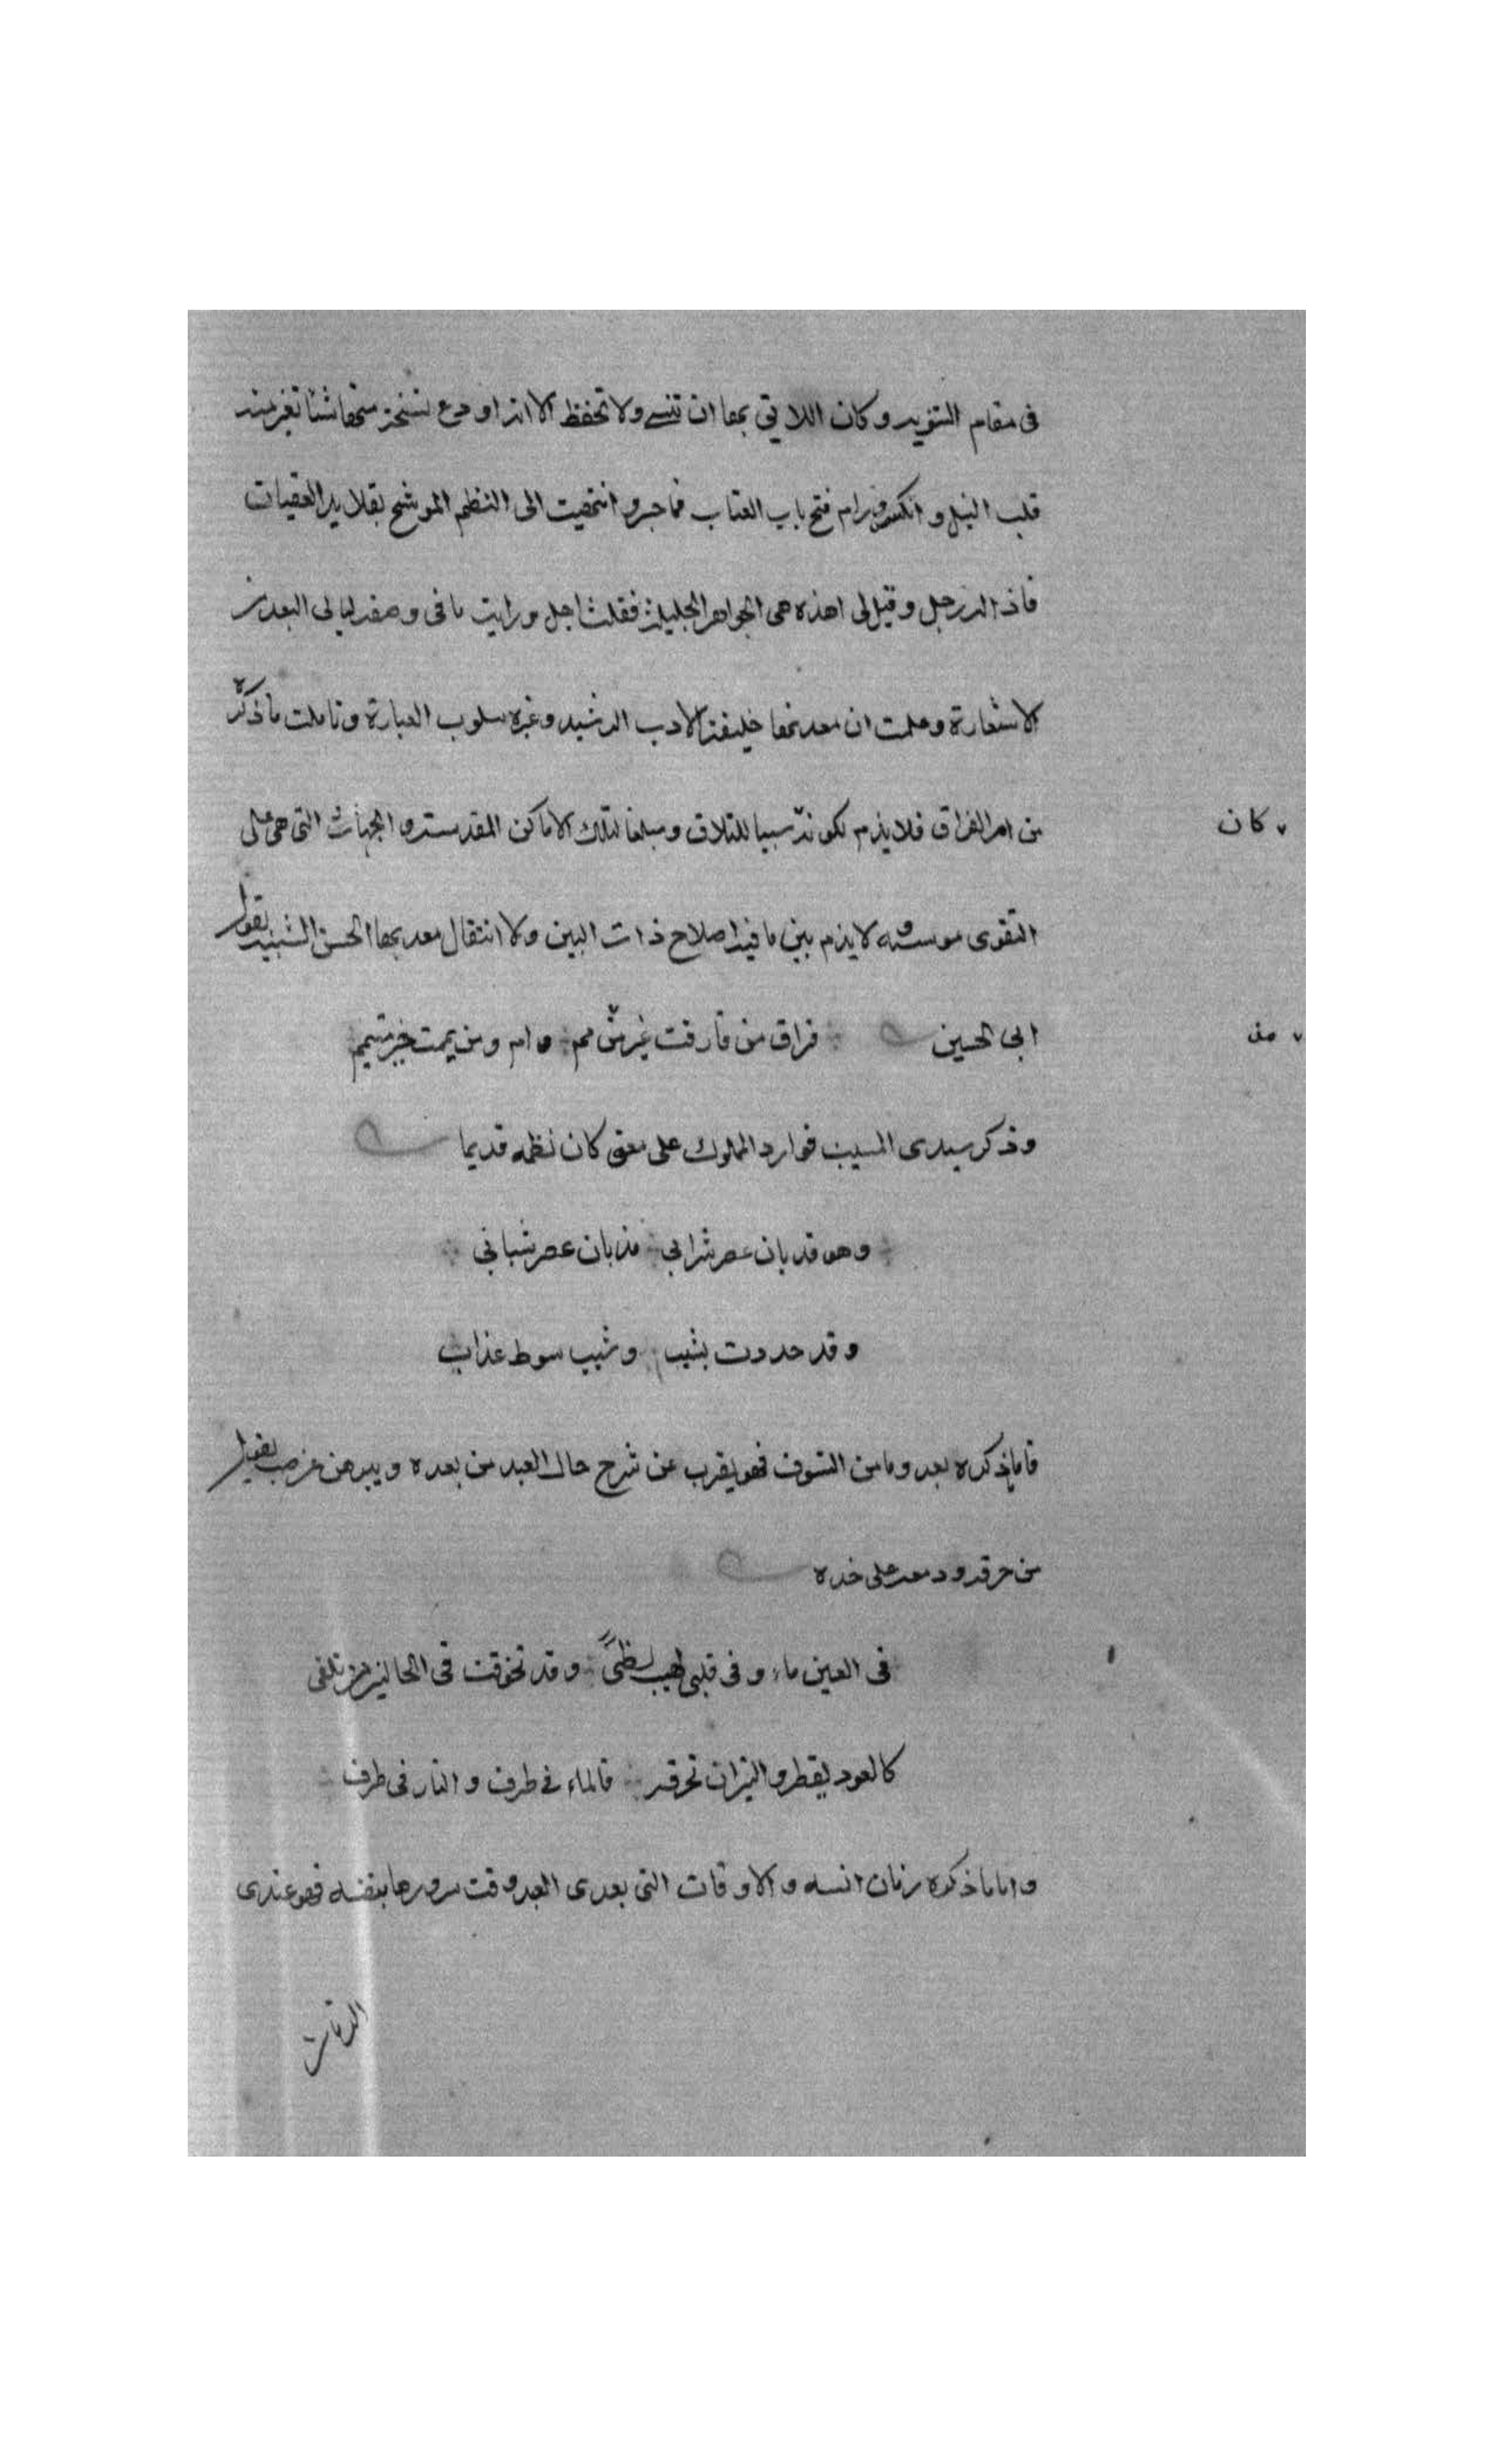 فى مقام التنويه وكان اللايق بها ان تنسى ولا تحفظ الا انه اودع نسخة منها شيئا تغير منه
قلب النيل وانكسر ورام فتح باب العتاب فما جسر وانتهيت الى النظم الموشح بقلايد العقيان
فاذا له زجل وقيل لى اهذه هى الجواهر الجليلة فقلت اجل ورايت ما فى وصفه ليالى البعد من
الاستعارة وعلمت ان معدنها خليفة الادب الرشيد وغيره سلوب العبارة وتاملت ما ذكره
من امر الفراق فلا يذم لكونه سببا للتلاق ومبلغا لتلك الاماكن المقدسة والجهات التى هى على
كان
التقوى موسسه ولا يذم بين ما فيه اصلاح ذات البين ولا انتقال معد بها الحسن الشبيه بقول
ابى الحسين فراق من فارقت غير مذمم وام ومن يممت خير ميمم
من
وذكر سيدى المشيب فوارد المملوك على معنى كان نظمه قديما
وهو قد بان عصر شرابي مذ بان عصر شبابي
وقد حددت بشيب وشيب سوط عذاب
فاما ذكره بعد وما من التشوق فهو يقرب عن شرح حال العبد من بعده ويبرهن عن
من حرقه ودمعه على خده
فى العين ماء وفى قلبى لهيب لظىً وقد تخوفت فى الحالين من تلفى
كالعود يقطر والنيران تحرقه فالماء فى طرف والنار فى طرف
واما ما ذكره زمان انسه والاوقات التى يعدى العبد وقت سرورها بنفسه فهو عندى